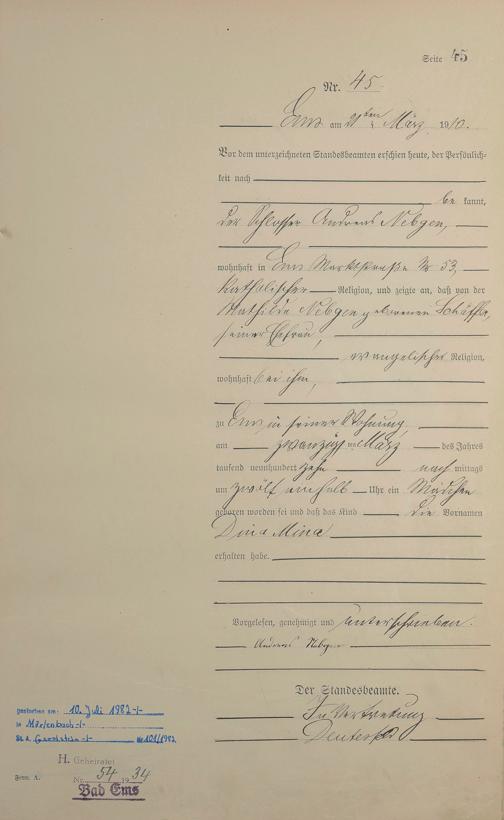 Seite 45
Nr. 45.
Ems am 21ten März 1910.
Vor dem unterzeichneten Standesbeamten erschien heute, der Persönlich-
keit nach
be kannt,
der Schlosser Andreas Nebgen,
wohnhaft in Ems Marktstraße Nr 53,
katholischer Religion, und zeigte an, daß von der
Mathilde Nebgen geborenen Schäffer,
seiner Ehefrau,
evangelischer Religion,
wohnhaft bei ihm,
zu Ems in seiner Wohnung,
am zwanzigsten März des Jahres
tausend neunhundert zehn nach mittags
um zwölf einhalb Uhr ein Mädchen
geboren worden sei und daß das Kind die Vornamen
Dina Mina
erhalten habe.
Vorgelesen, genehmigt und unterschrieben.
Andreas Nebgen
Der Standesbeamte.
In Vertretung
gestorben am: 10. Juli 1982 -/-
in -/-
St.A. -/- Nr 101/1982
H. Geheiratet
Form. A.
Nr. 54 1934
Bad Ems